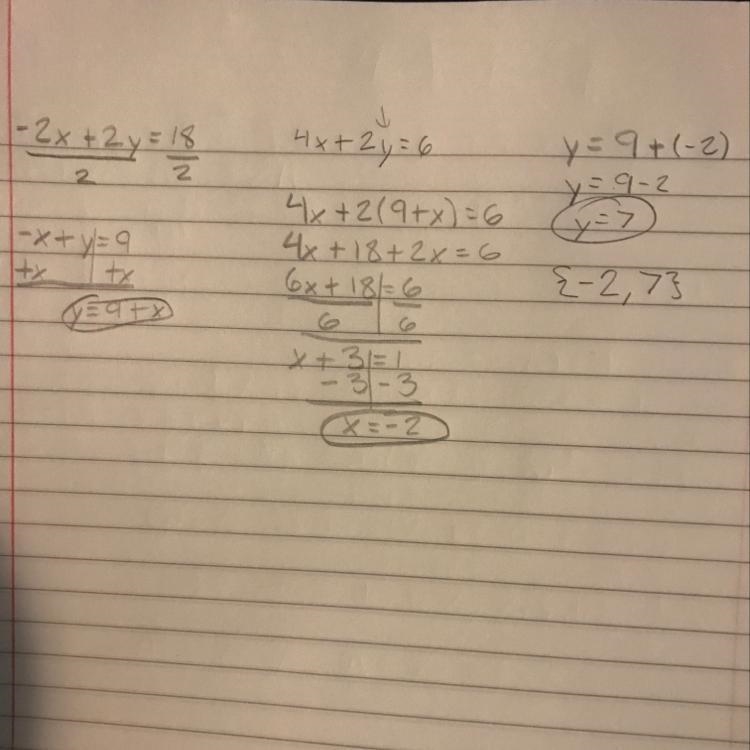 -2x + 2y = 18
2 2
-x + y = 9
+x +x
y = 9 + x
↓
4x + 2y = 6
4x + 2(9 + x) = 6
4x + 18 + 2x = 6
6x + 18 = 6
6 6
x + 3 = 1
- 3 - 3
x = -2
y = 9 + (-2)
y = 9 - 2
y = 7
{-2, 7}